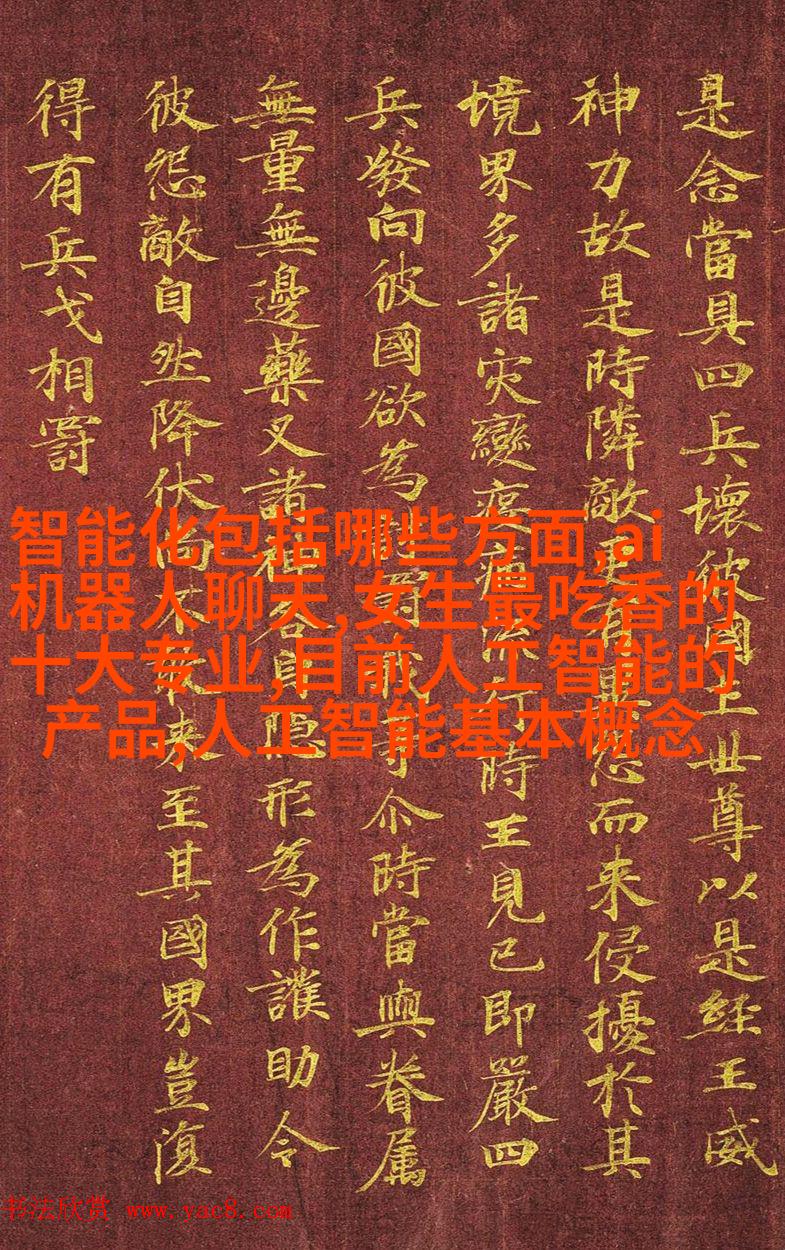 是念當具四兵壞彼國王世尊以是經王威
神力故是時隣敵更有異怨而来侵擾於其
境界多諸灾變疫病流行時王見已即嚴四
兵發向彼國欲為討罸我等尒時當與眷属
無量無邊藥叉諸神各自隱形為作護助令
彼怨敵自然降伏尚不敢来至其國界豈復
得有兵戈相罸
智能化包括哪些方面,ai
机器人聊天,女生最吃香的
十大专业,目前人工智能的
产品,人工智能基本概念
书法欣赏 www.yac8.com